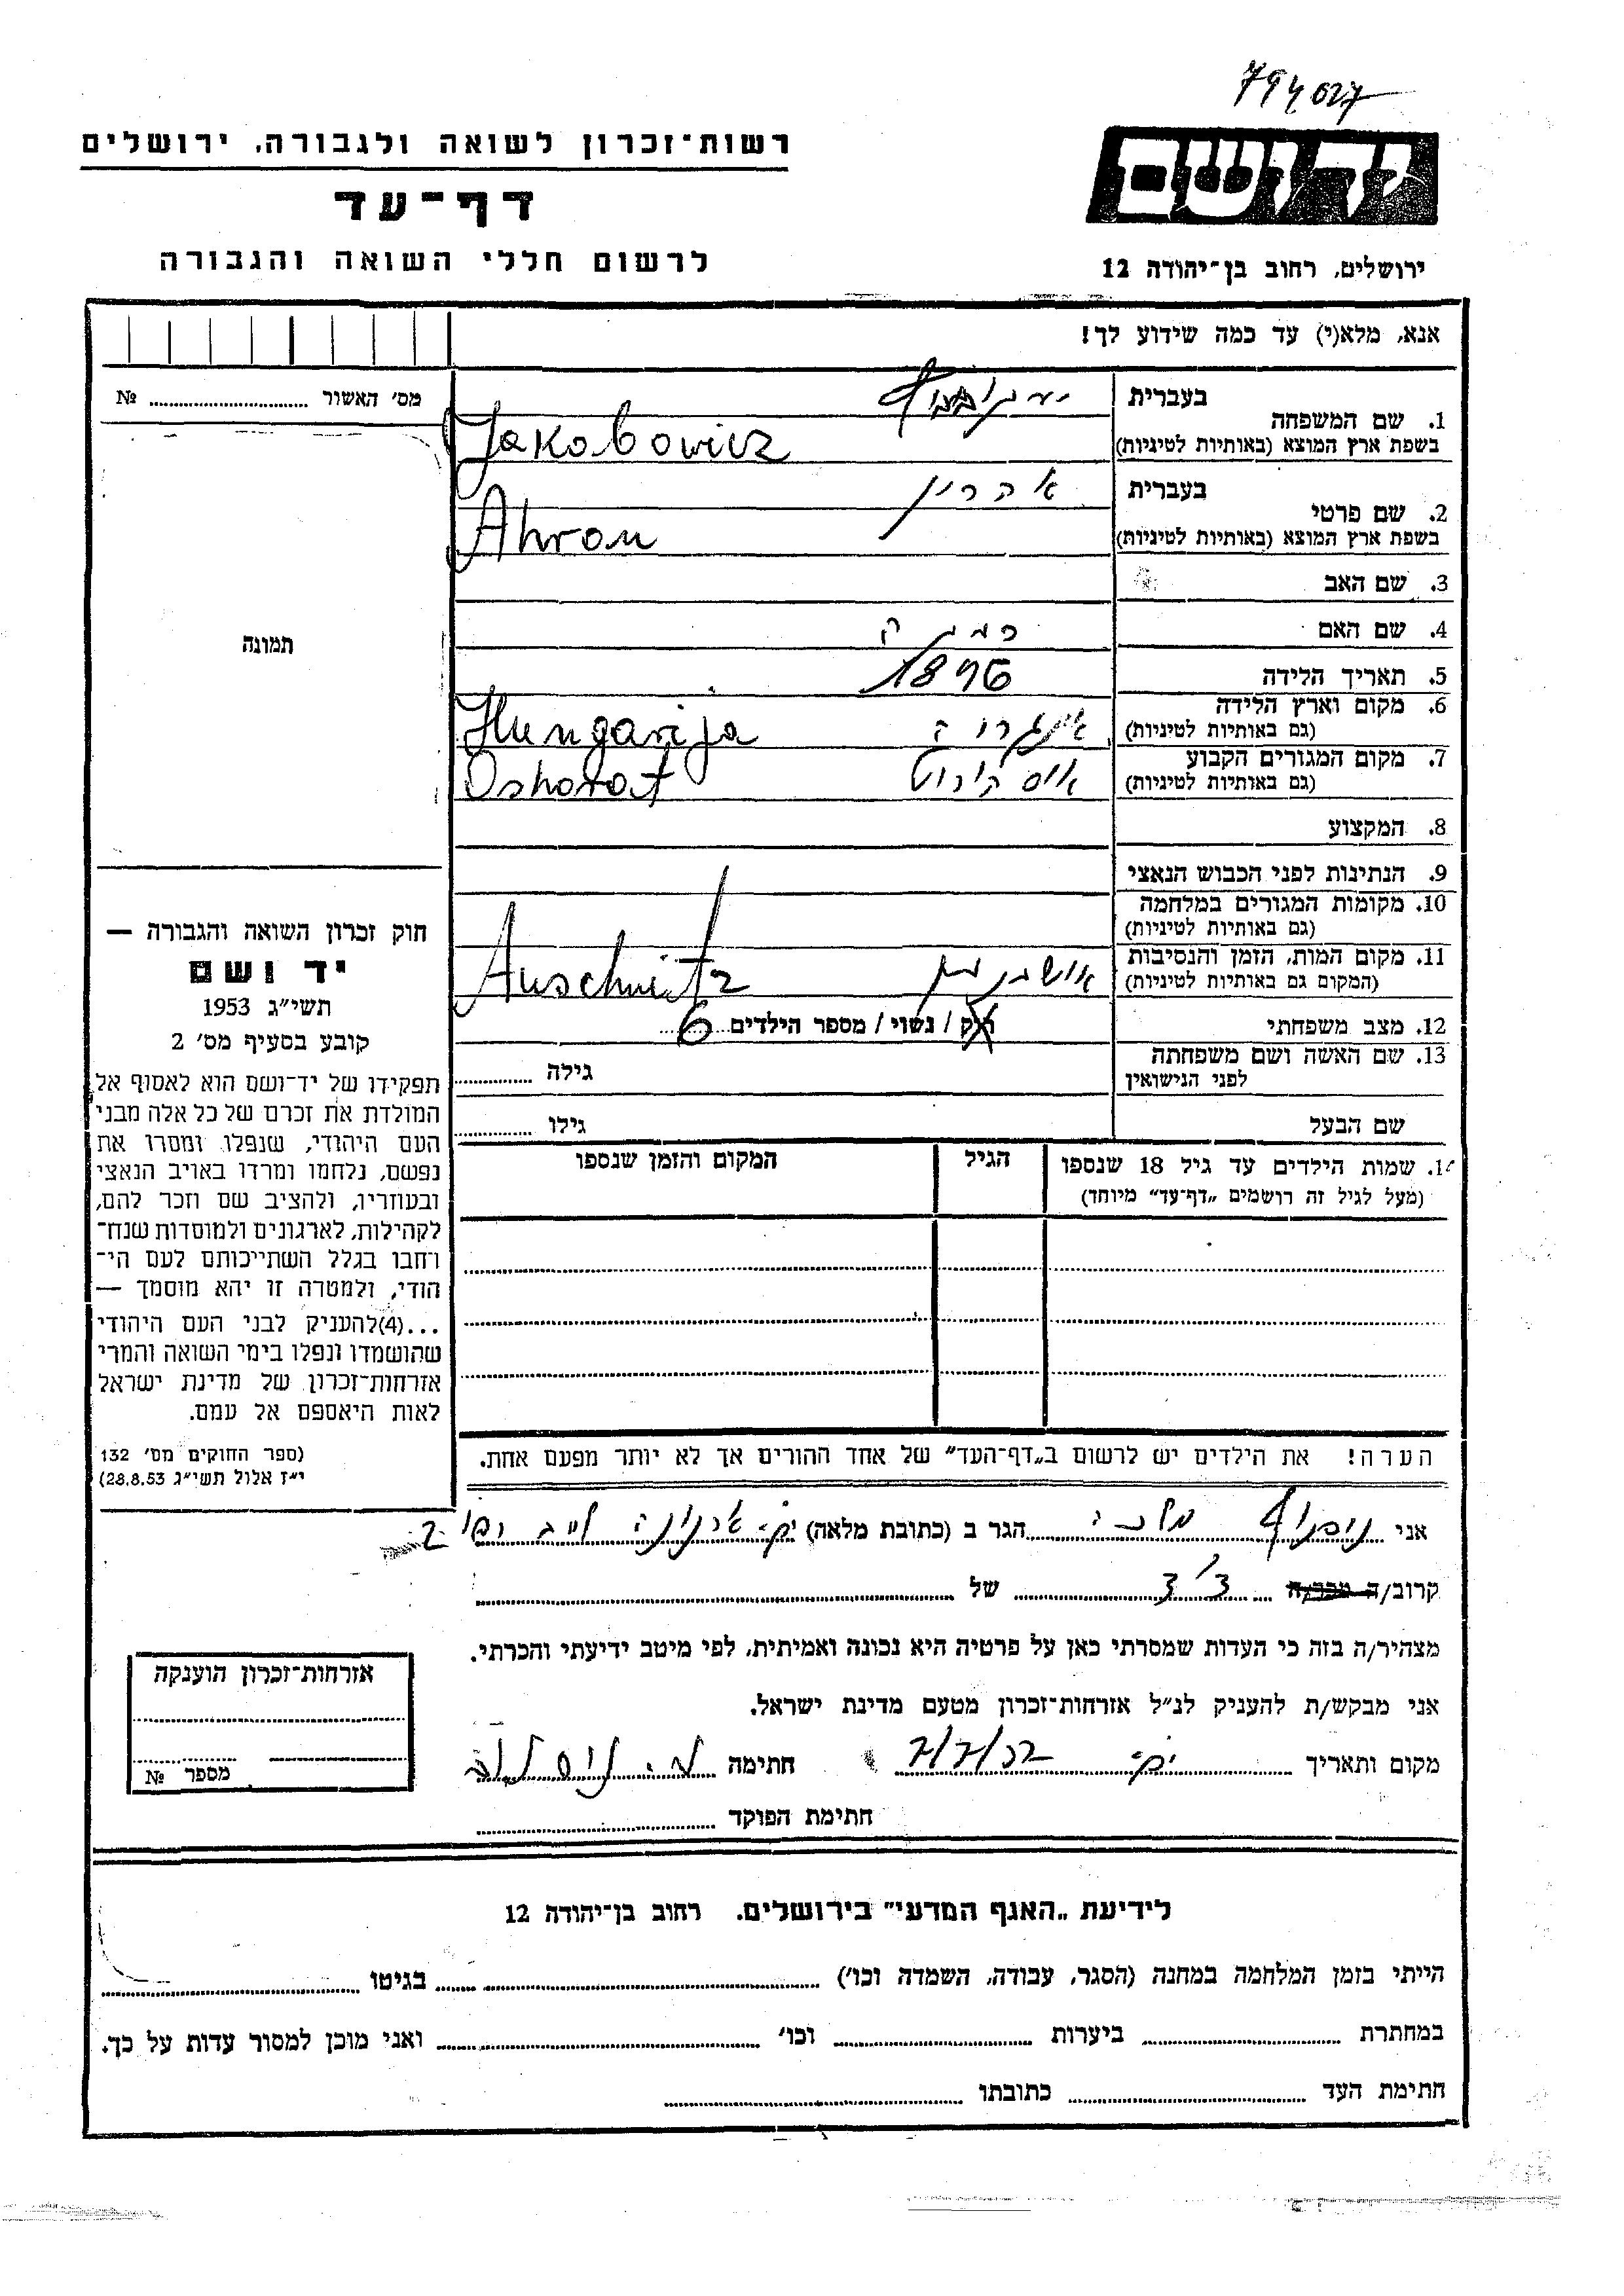 794027
יד ושם
ירושלים, רחוב בן־יהודה 12
רשות־זכרון לשואה ולגבורה, ירושלים
דף־עד
לרשום חללי השואה והגבורה
אנא, מלא(י) עד כמה שידוע לך!
מס׳ האשור № 
תמונה
1. שם המשפחה בעברית
בשפת ארץ המוצא (באותיות לטיניות) Jakobowicz
2. שם פרטי בעברית אהרון
בשפת ארץ המוצא (באותיות לטיניות) Ahron
3. שם האב
4. שם האם
5. תאריך הלידה 1896
6. מקום וארץ הלידה
(גם באותיות לטיניות) Hungarija
7. מקום המגורים הקבוע
(גם באותיות לטיניות)
8. המקצוע
9. הנתינות לפני הכבוש הנאצי
10. מקומות המגורים במלחמה
(גם באותיות לטיניות)
11. מקום המות, הזמן והנסיבות
(המקום גם באותיות לטיניות) Auschwitz
12. מצב משפחתי רוק / נשוי / מספר הילדים 6
13. שם האשה ושם משפחתה
לפני הנישואין גילה
שם הבעל גילו
14. שמות הילדים עד גיל 18 שנספו הגיל המקום והזמן שנספו
(מעל לגיל זה רושמים „דף־עד״ מיוחד)
הערה! את הילדים יש לרשום ב„דף־העד״ של אחד ההורים אך לא יותר מפעם אחת.
חוק זכרון השואה והגבורה —
יד ושם
תשי״ג 1953
קובע בסעיף מס׳ 2
תפקידו של יד־ושם הוא לאסוף אל
המולדת את זכרם של כל אלה מבני
העם היהודי, שנפלו ומסרו את
נפשם, נלחמו ומרדו באויב הנאצי
ובעוזריו, ולהציב שם וזכר להם,
לקהילות, לארגונים ולמוסדות שנח־
רחבו בגלל השתייכותם לעם הי־
הודי, ולמטרה זו יהא מוסמך —
...(4)להעניק לבני העם היהודי
שהושמדו ונפלו בימי השואה והמרי
אזרחות־זכרון של מדינת ישראל
לאות היאספם אל עמם.
(ספר החוקים מס׳ 132
י״ז אלול תשי״ג 28.8.53)
אני הגר ב (כתובת מלאה)
קרוב/ה מכר/ה של
מצהיר/ה בזה כי העדות שמסרתי כאן על פרטיה היא נכונה ואמיתית, לפי מיטב ידיעתי והכרתי.
אני מבקש/ת להעניק לנ״ל אזרחות־זכרון מטעם מדינת ישראל.
מקום ותאריך חתימה
חתימת הפוקד
אזרחות־זכרון הוענקה
מספר №
לידיעת „האגף המדעי״ בירושלים. רחוב בן־יהודה 12
הייתי בזמן המלחמה במחנה (הסגר, עבודה, השמדה וכו׳) בגיטו
במחתרת ביערות וכו׳ ואני מוכן למסור עדות על כך.
חתימת העד כתובתו